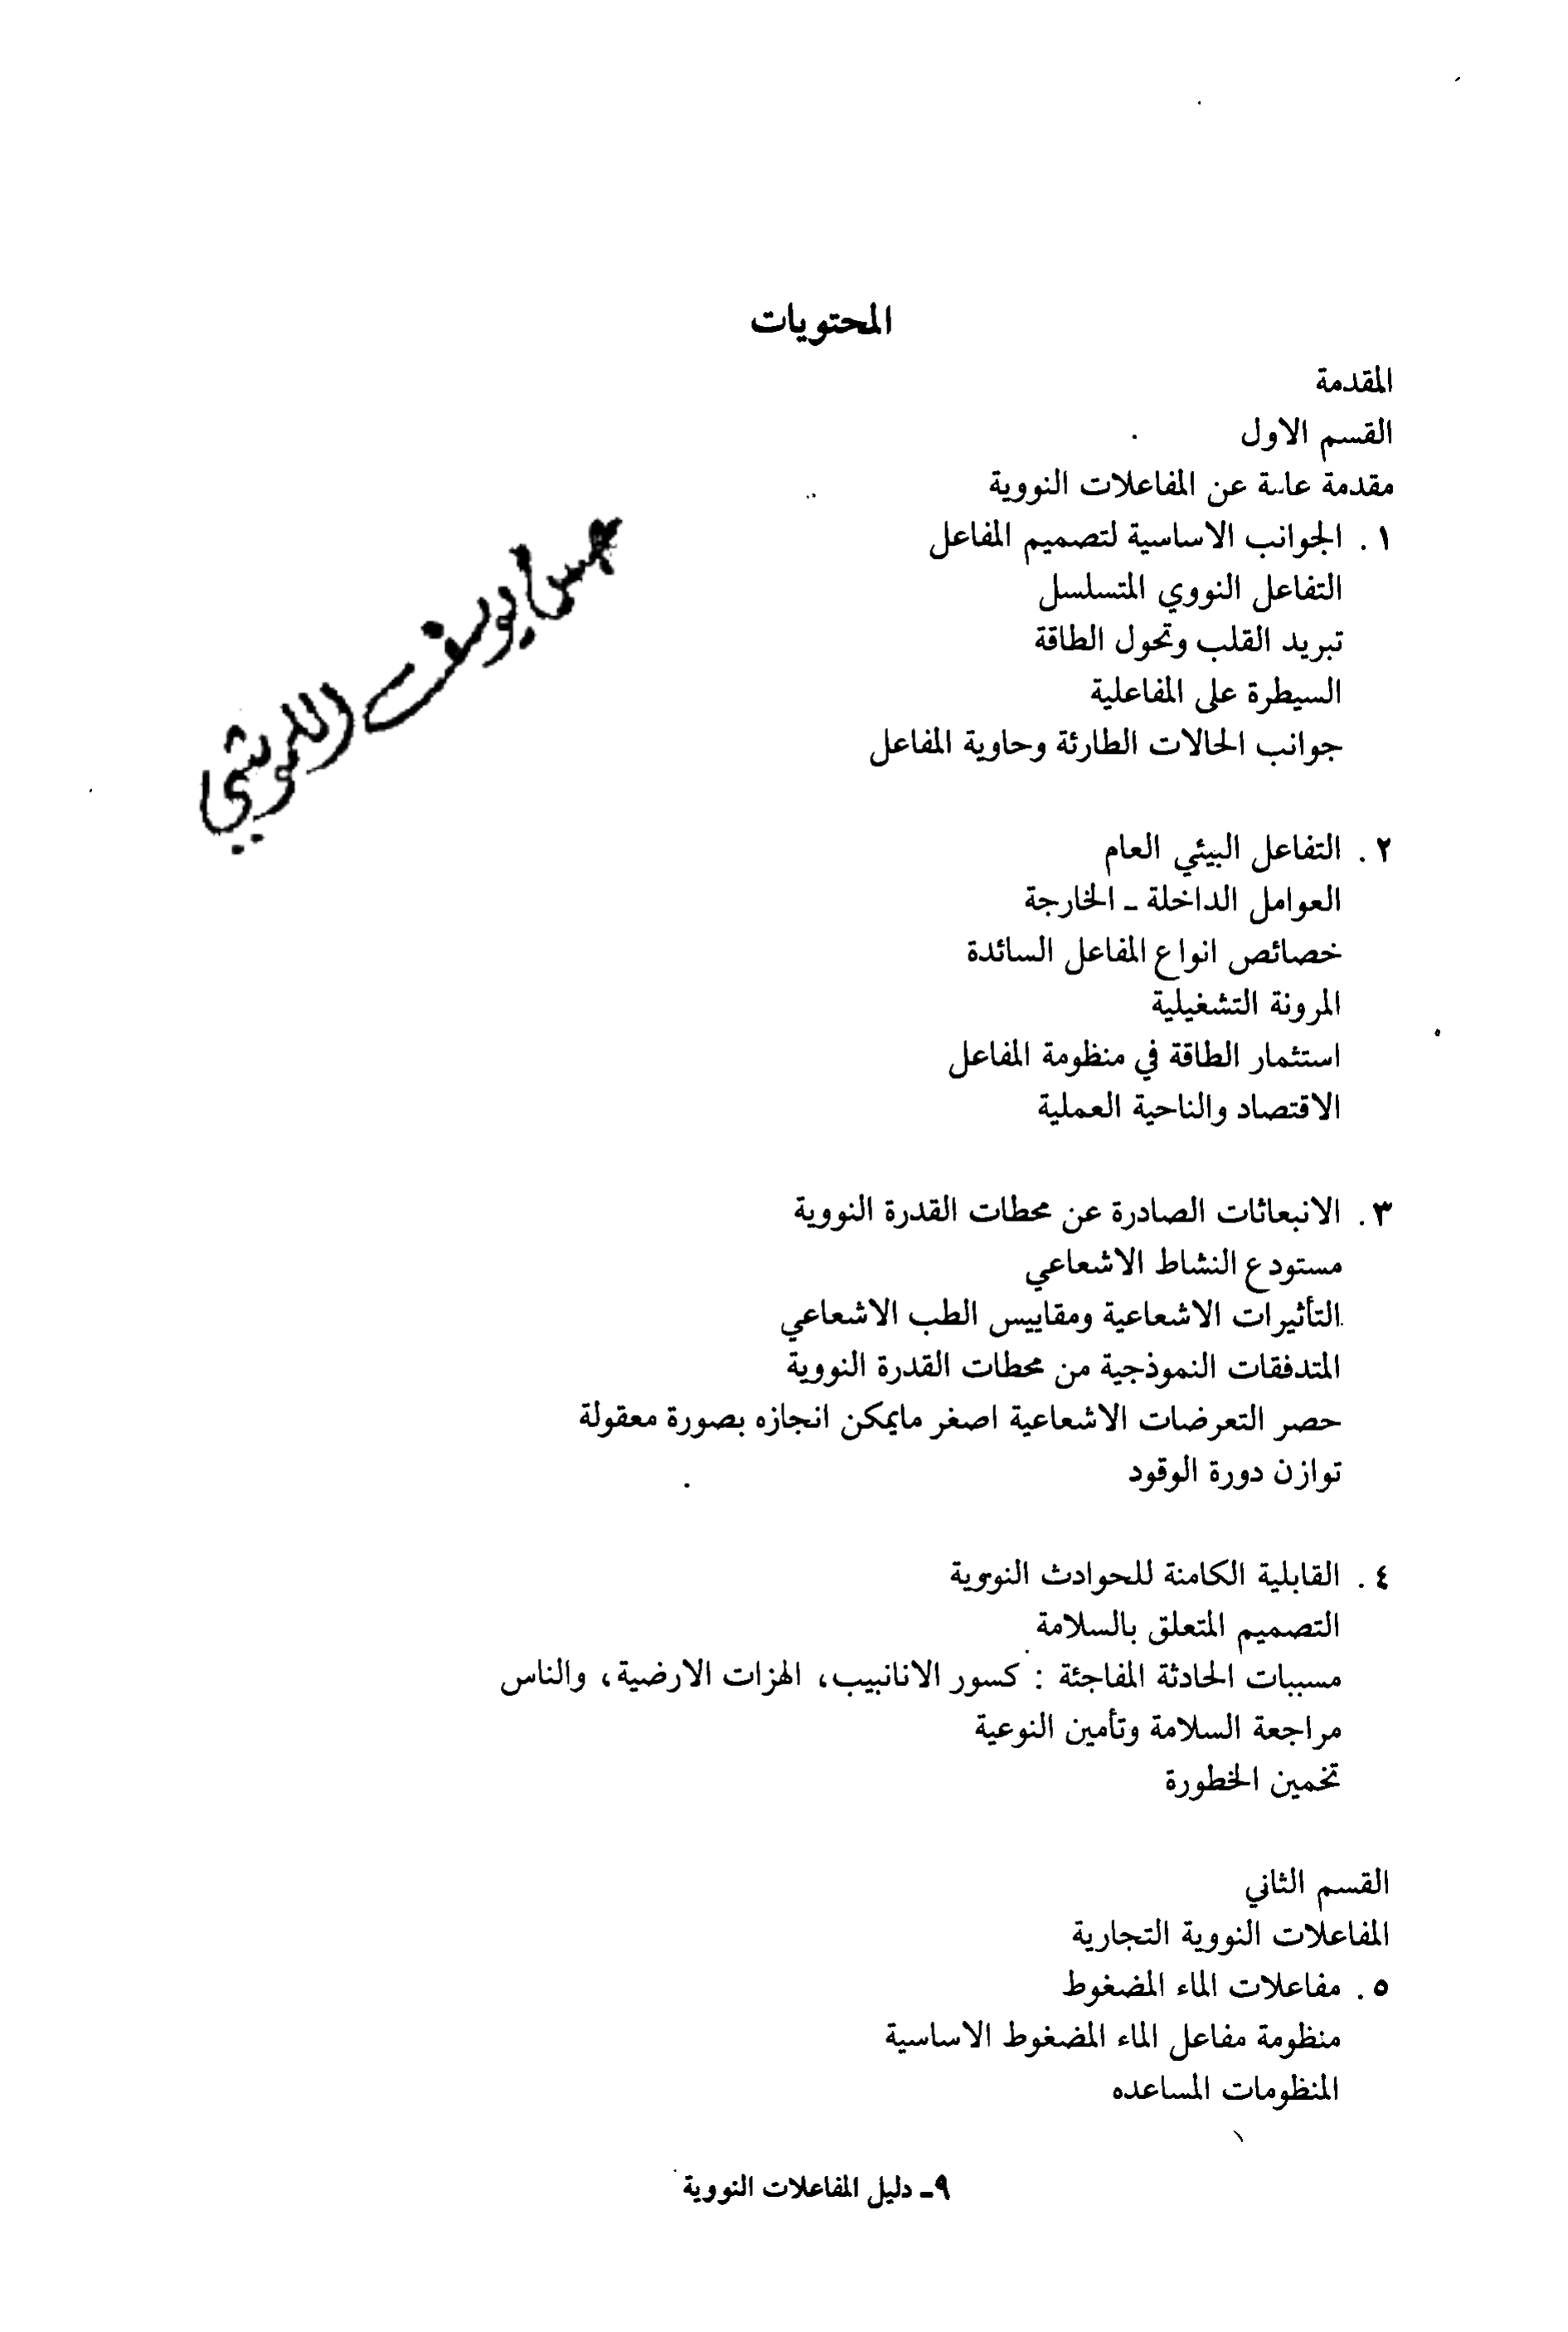 المحتويات
المقدمة
القسم الاول
مقدمة عامة عن المفاعلات النووية
١ . الجوانب الاساسية لتصميم المفاعل
التفاعل النووي المتسلسل
تبريد القلب وتحول الطاقة
السيطرة على المفاعلية
جوانب الحالات الطارئة وحاوية المفاعل
يوسف
٢ . التفاعل البيئي العام
العوامل الداخلة ـ الخارجة
خصائص انواع المفاعل السائدة
المرونة التشغيلية
استثمار الطاقة في منظومة المفاعل
الاقتصاد والناحية العملية
٣ . الانبعاثات الصادرة عن محطات القدرة النووية
مستودع النشاط الاشعاعي
التأثيرات الاشعاعية ومقاييس الطب الاشعاعي
المتدفقات النموذجية من محطات القدرة النووية
حصر التعرضات الاشعاعية اصغر مايمكن انجازه بصورة معقولة
توازن دورة الوقود
٤ . القابلية الكامنة للحوادث النووية
التصميم المتعلق بالسلامة
مسببات الحادثة المفاجئة : كسور الانانبيب، الهزات الارضية، والناس
مراجعة السلامة وتأمين النوعية
تخمين الخطورة
القسم الثاني
المفاعلات النووية التجارية
٥ . مفاعلات الماء المضغوط
منظومة مفاعل الماء المضغوط الاساسية
المنظومات المساعده
٩ـ دليل المفاعلات النووية